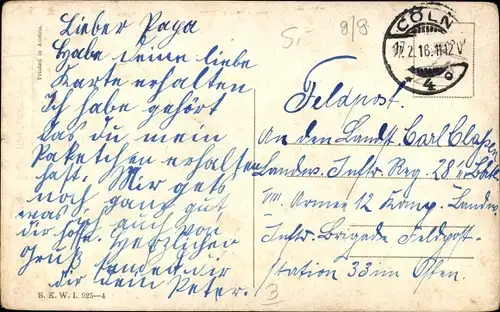 Printed in Austria.
Lieber Papa
Habe deine liebe
Karte erhalten
Ich habe gehört
das du mein
Paketchen erhalten
hast. Mir gets
noch ganz gut
was ich auch von
dir hoffe. Herzlichen
Gruß sendet dir
dein Peter.
B. K. W. I. 925-4
S.
9/9
CÖLN
17.2.16.11-12V
4
Feldpost.
An den Landst. Carl
Landw. Inftr. Reg. 28
VIII. Armee 12 Komp. Landw
Inftr. Brigade Feldpost-
station 33 im Osten.
3